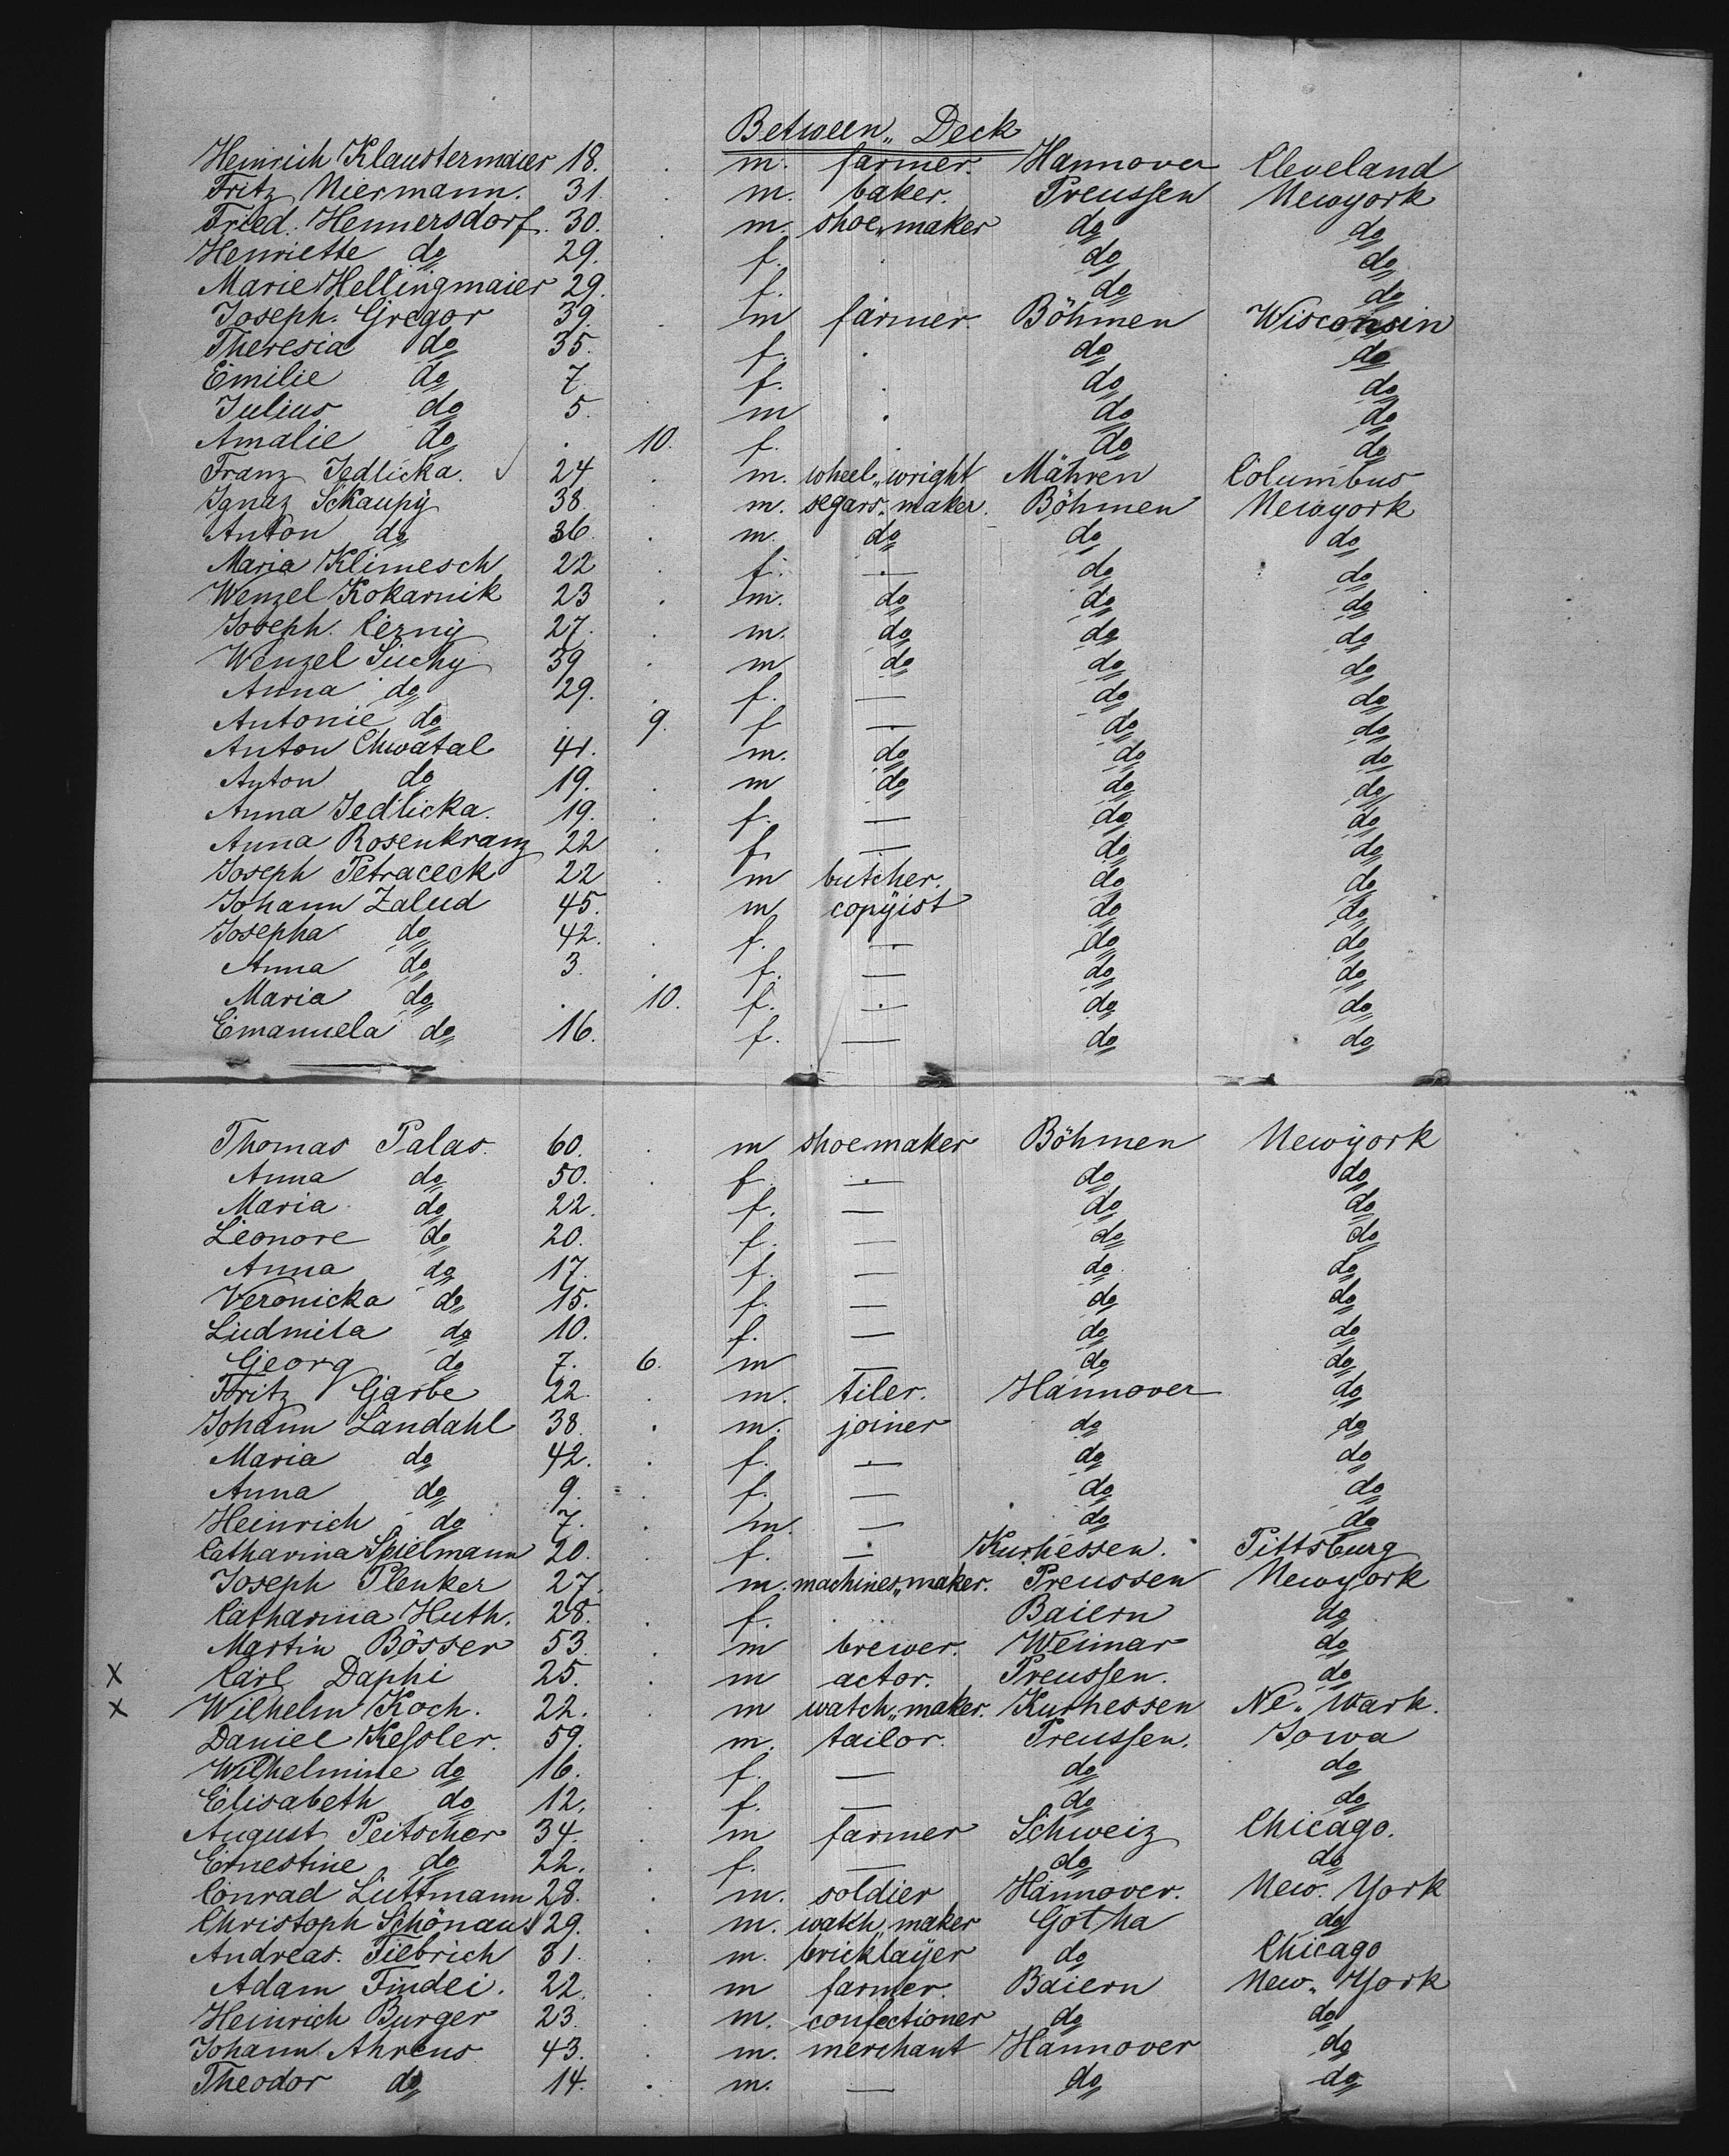 Between„ Deck
Heinrich Klaustermaier 18. . m. farmer. Hannover Cleveland
Fritz Niermann. 31. . m. baker. Preussen Newyork
Fried. Hennersdorf. 30. . m. shoe„maker do do
Henriette do 29. f. . do do
Marie Hellingmaier 29. f. do do
Joseph. Gregor 39. . m farmer. Böhmen Wisconsin
Theresia do 35. f. . do do
Emilie do 7. f. . do do
Julius do 5. . m . do do
Amalie do . 10. f. . do do
Franz Jedlicka. 24 . m. wheel„wright Mähren Columbus
Ignaz Skaupy 38. . m. segars„maker. Böhmen Newyork
Anton do 36. . m. do do do
Maria Klimesch 22 . f. — do do
Wenzel Kokarnik 23 . m. do do do
Joseph. Cerny 27. . m. do do do
Wenzel Suchy 39 . m do do do
Anna do 29. . f. — do do
Antonie do . 9. f — do do
Anton Chwatal 41. m. do do do
Anton do 19. . m do do do
Anna Jedlicka. 19. . f. — do do
Anna Rosenkranz 22 . f. — do do
Joseph Petraceck 22 . m butcher. do do
Johann Zalud 45. m copyist do do
Josepha do 42. . f. — do do
Anna do 3. . f. — do do
Maria do . 10. f. — do do
Emanuela do 16. f. — do do
Thomas Palas. 60. . m shoemaker Böhmen Newyork
Anna do 50. . f — do do
Maria do 22. f. — do do
Leonore do 20. f. — do do
Anna do 17. f. — do do
Veronicka do 15. f. — do do
Ludmila do 10. f. — do do
Georg do 7. 6. m — do do
Fritz Garbe 22. . m. tiler. Hannover do
Johann Landahl 38. . m. joiner do do
Maria do 42. . f. — do do
Anna do 9. . f. — do do
Heinrich do 7. . m. — do do
Catharina Spielmann 20. . f. — Kurhessen. Pittsburg
Joseph Plenker 27. m. machines„maker. Preussen Newyork
Catharina Huth. 28. . f. . Baiern do
Martin Bösser 53. . m brewer. Weimar do
X Carl Daphi 25. . m actor. Preussen. do
X Wilhelm Koch. 22. . m watch„maker. Kurhessen Ne„Wark.
Daniel Kessler. 59. m. tailor. Preussen. Iowa
Wilhelmine do 16. f. — do do
Elisabeth do 12. . f. — do do
August Peitscher 34. . m farmer Schweiz Chicago.
Ernestine do 22. . f. — do do
Conrad Luttmann 28. . m. soldier Hannover. New. York
Christoph Schönau 29. . m. watch„maker Gotha do
Andreas. Fiebrich 31. . m. bricklayer do Chicago
Adam Findei. 22. . m farmer. Baiern New„York
Heinrich Burger 23. . m. confectioner do do
Johann Ahrens 43. . m. merchant Hannover do
Theodor do 14. . m. — do do